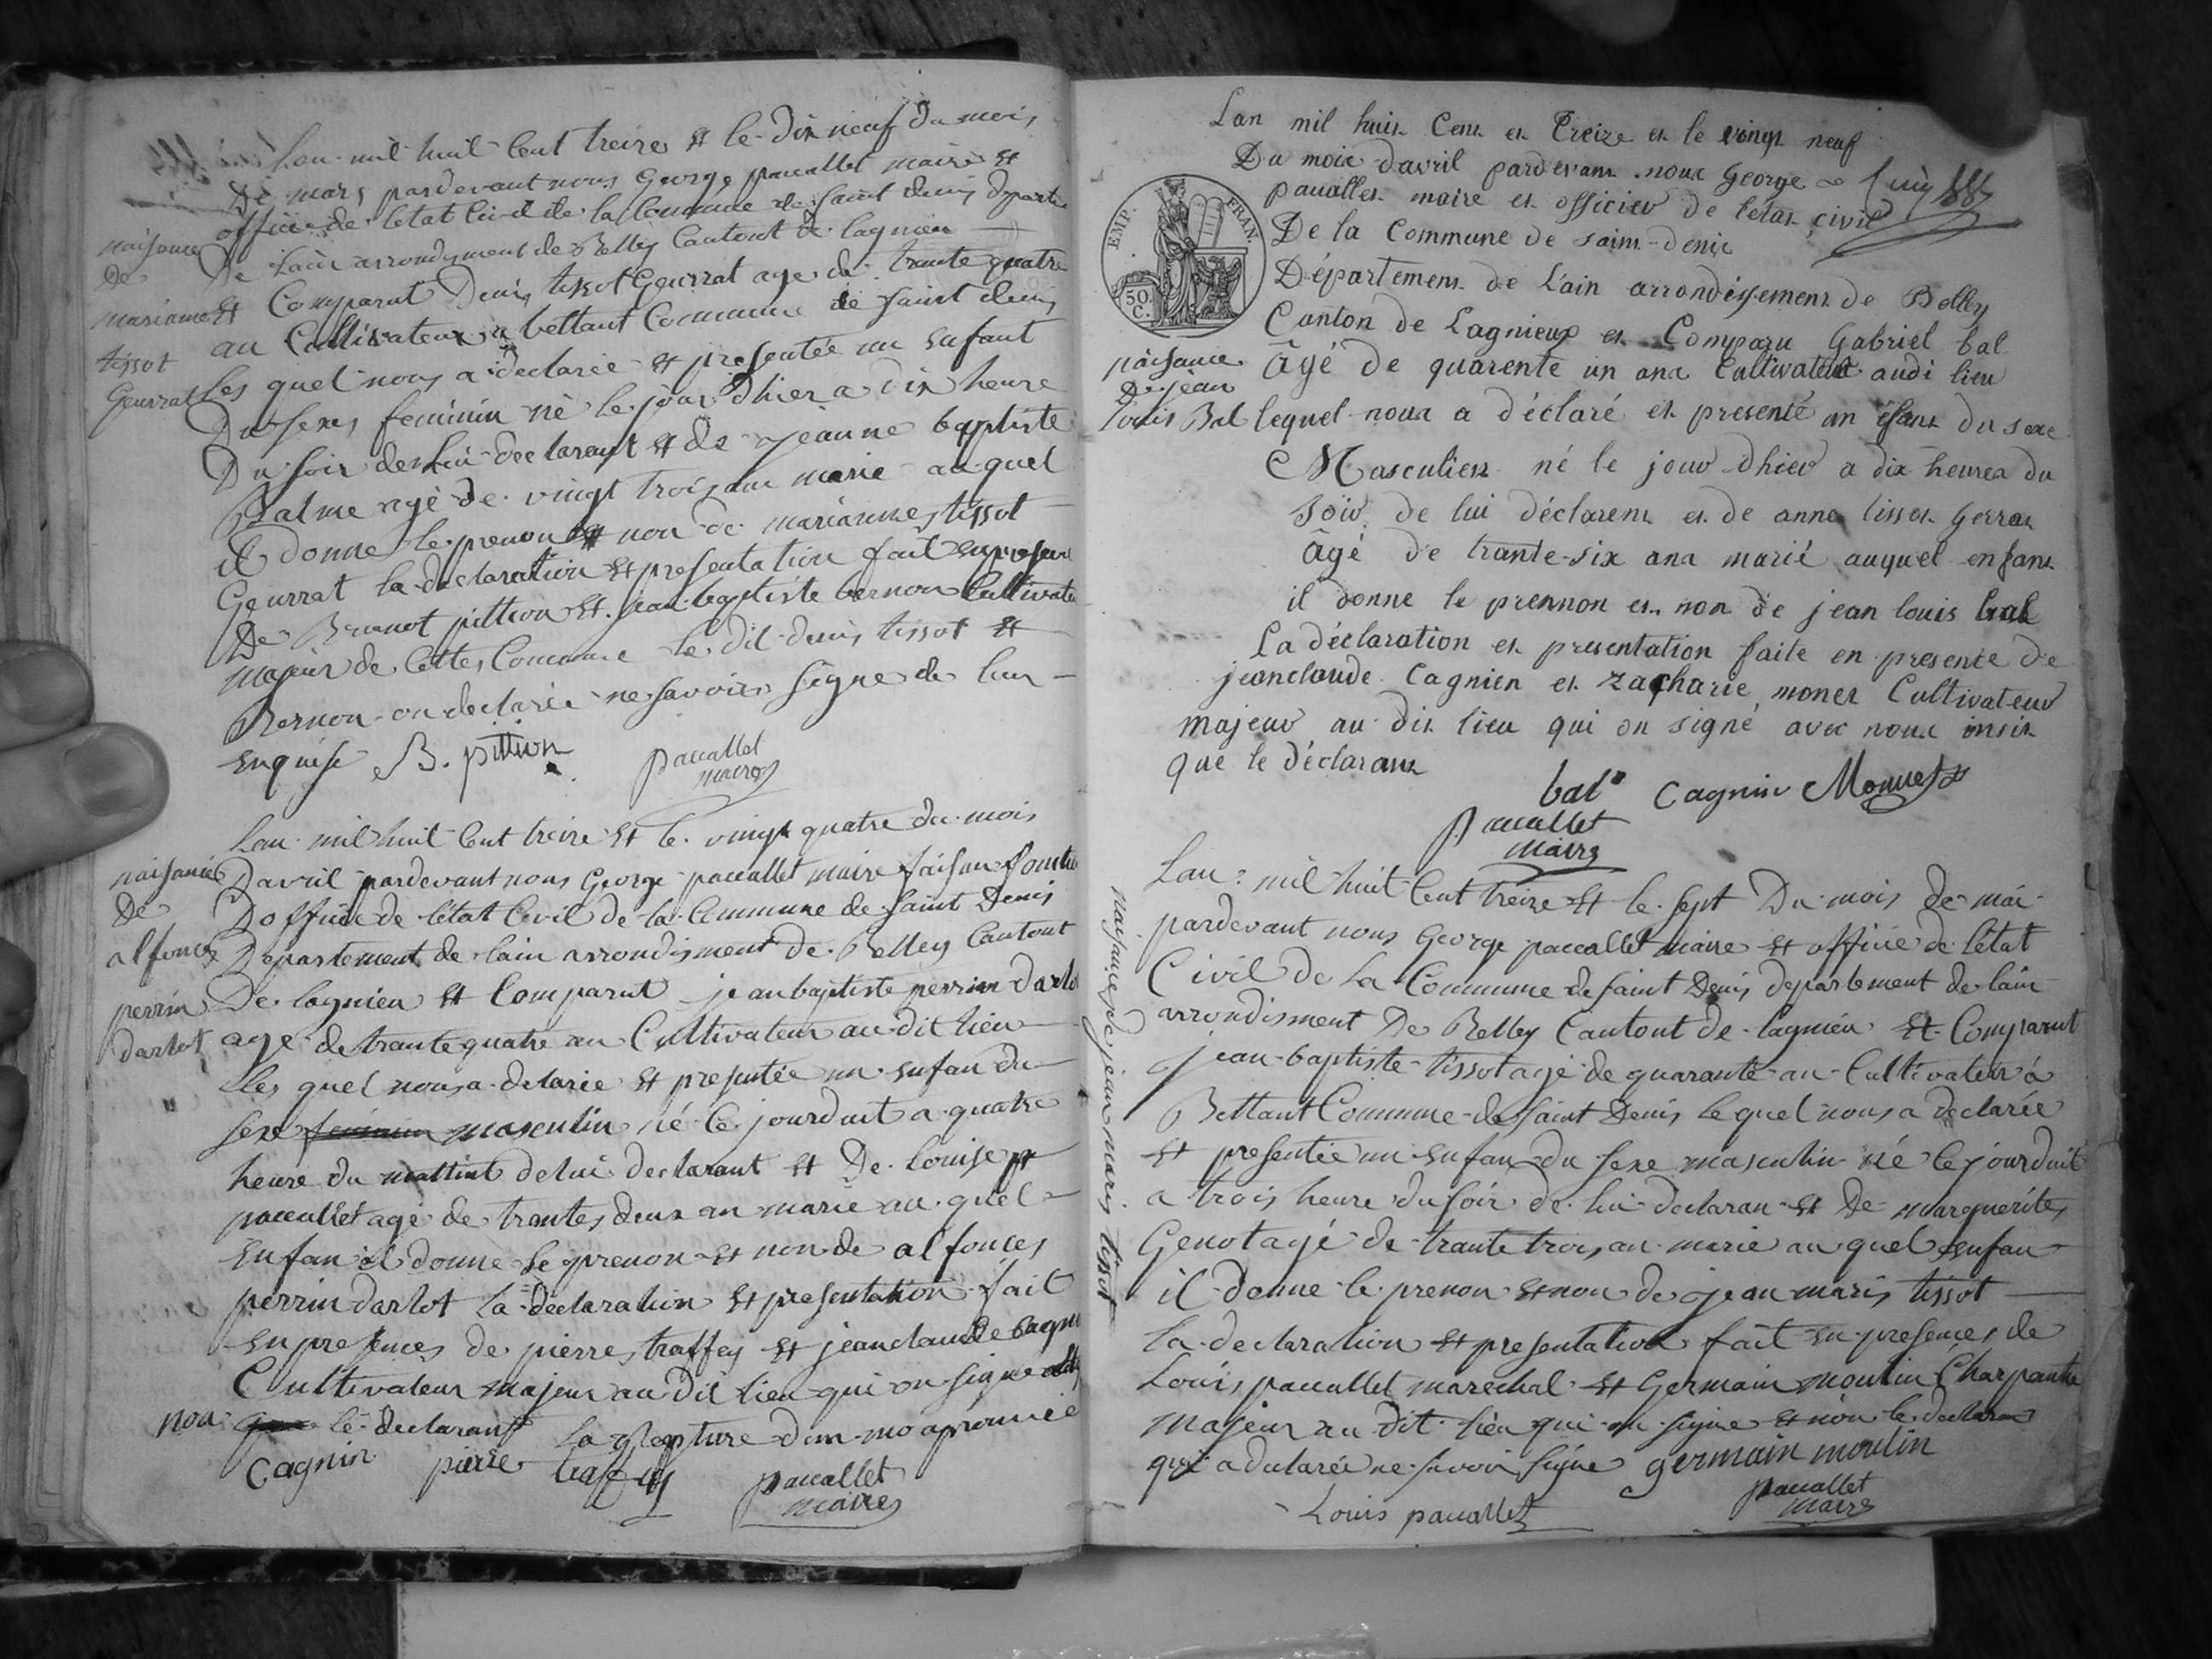 Lan mil huit Cent treize et le dix neuf du mois
De mars pardevant nous George paucallet maire et
office de letat Civil de la Commune de saint denis departe
De lain arrondisment de Belley Cantont de lagnieu
et Comparut Denis tissot Geurrat age de trante quatre
an Cultivateur a bettant Commune de saint denis
Les quel nous a declarée et presentée un enfant
Du sexes feminin né le jour dhier a dix heure
Du soir de lui declarant et de jeanne baptiste
Balme agé de vingt trois an marie au quel
il donne le prenon et non de marianne tissot
Geurrat la declaration et presentation fait enpresence
De Benoot pittion et jean baptiste bernon Cultivate
majeur de cettes Commune le dit denis tissot et
Bernon on declarée ne savoires signe de leur
enquise B. pittion paucallet
maire
naisance
De
marianne
tissot
Geurrat
Lan mil huit Cent treize et le vingt quatre du mois
Davril pardevant nous George paucallet maire faisan fonction
Doffice de letat Civil de la Commune de saint Denis
Departement de lain arrondisment de Belley Cantont
De lagnieu et Comparut jean baptiste perrin darlot
age de trante quatre an Cultivateur au dit lieu
les quel nous a delarie et presentée un enfan du
sexe feminin masculin né le jourduit a quatre
heure du mattint de lui declarant et De Louise
paucallet agé de trantes deux an marie au quel
enfan il donne le prenon et non de alfonces
perrin darlot la declaration et presentation fait
en presences de pierre traffey et jean claude Cagnin
Cultivateur majeur au Dit lieu qui on signe
non que le declarant La rapture dun mo aprouvée
Cagnin pierre traffey paucallet
maires
naisance
De
alfonces
perrin
darlot
Lan mil huit Cent et Treize et le vingt neuf
Du mois davril pardevant nous George
paucallet maire et officier de létat civil
De la Commune de saint-denis
Département de L'ain arrondissement de Belley
Canton de Lagnieux et Comparu Gabriel bal
âgé de quarente un ans Cultivateur audi lieu
lequel nous a déclaré et presenté un efant du sexe
Masculien né le jour dhier a dix heures du
soir de lui déclarent et de anne tissot gerrat
âgé de trante-six ans marié auquel enfant
il donne le prennon et non de jean louis bal
La déclaration et presentation faite en presente de
jeanclaude Cagnien et zacharie monet Cultivateur
majeur au dit lieu qui on signé avec nous insit
que le déclarant
bal Cagnin Monnet
paucallet
maire
EMP. FRAN.
50.
C.
naisance
De jean
louis Bal
Lan mil huit Cent treize et le sept Du mois de mai
pardevant nous George paucallet maire et office de letat
Civil de la Commune de saint Denis departement de lain
arrondisment De Belley Cantont de lagnieu et Comparut
jean baptiste tissot agé de quarante an Cultivateur a
Bettant Commune de saint Denis le quel nous a declarée
et presentée un enfan du sexe masculin né le jourduit
a trois heure du soir de lui declaran et De marguerites
Genot agé de trante trois an marie au quel enfan
il donne le prenon et non de jean maris tissot
la declaration et presentation fait en presences de
Louis paucallet marechal et Germain moulin Charpantie
majeur au dit lieu qui on signe et non le declaran
qui a declarée ne savoir signe germain moulin
Louis paucallet paucallet
maire
naisance de jean maris tissot